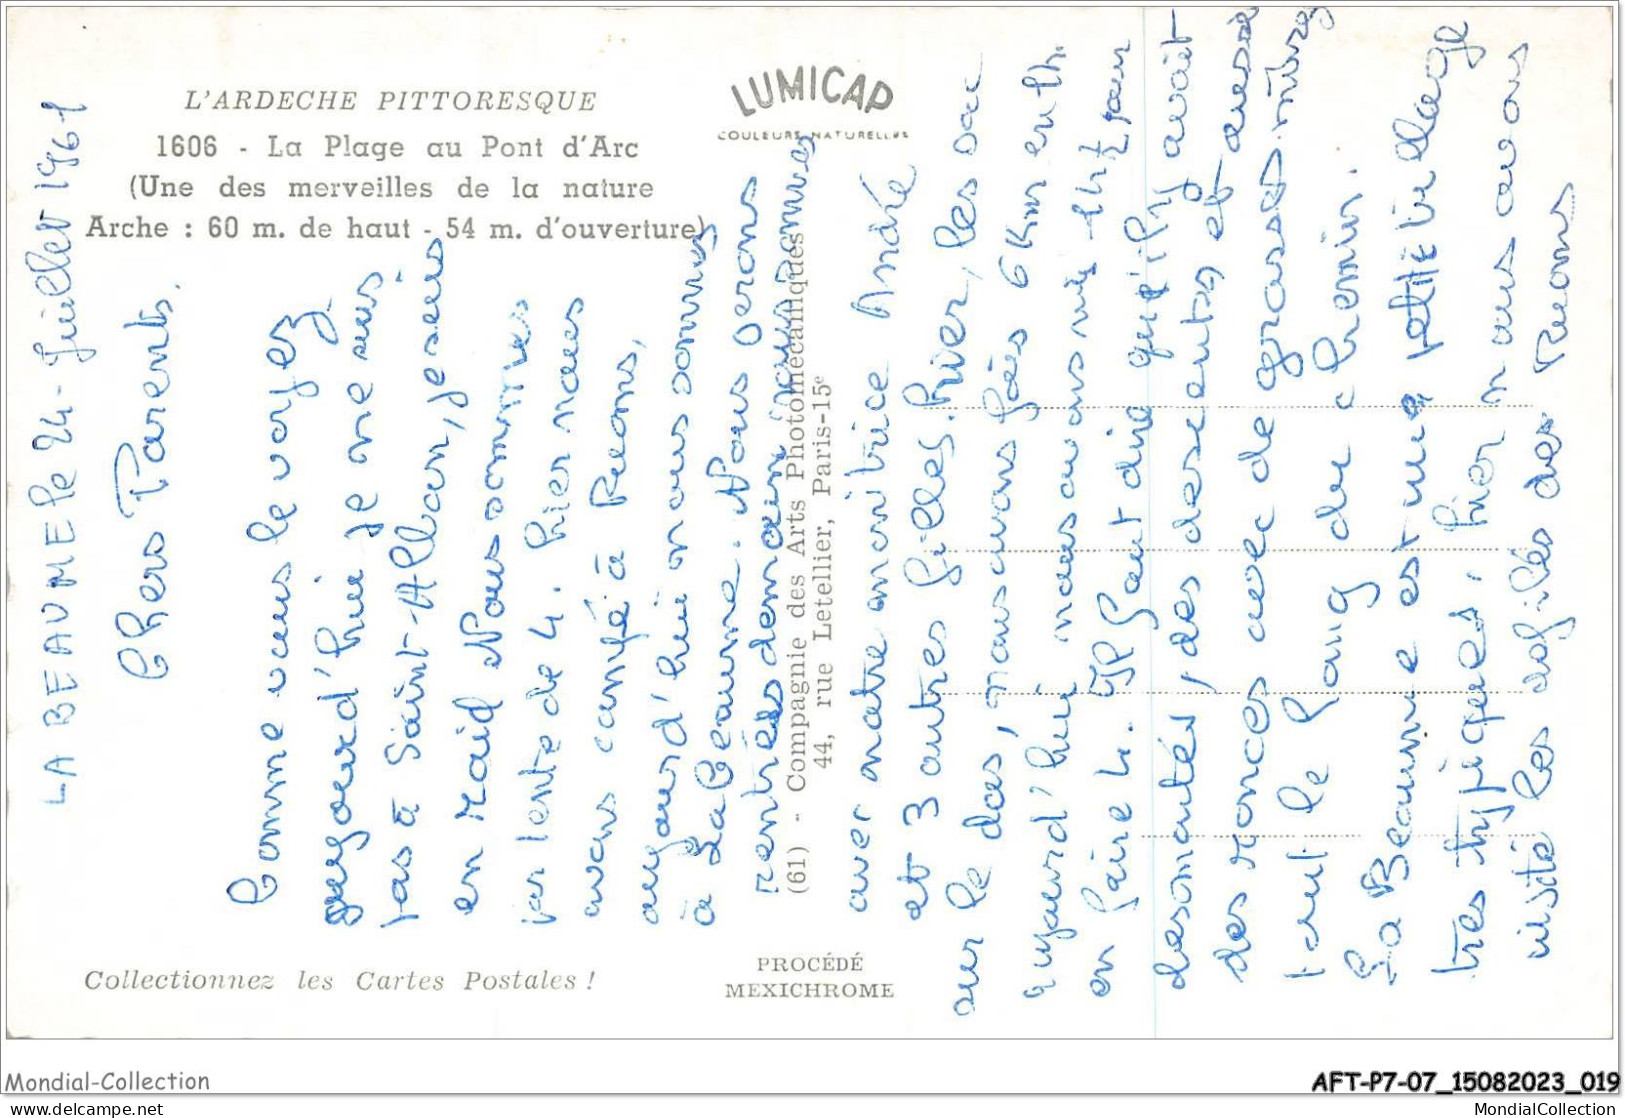 L'ARDECHE PITTORESQUE
1606 - La Plage au Pont d'Arc
(Une des merveilles de la nature
Arche : 60 m. de haut - 54 m. d'ouverture)
LUMICAP
COULEURS NATURELLES
(61) - Compagnie des Arts Photomécaniques
44, rue Letellier, Paris-15e
Collectionnez les Cartes Postales !
PROCÉDÉ
MEXICHROME
LA BEAUME le 24 - Juillet 1961
Chers Parents.
Comme vous le voyez
aujourd'hui je ne suis
pas à Saint-Alban, je suis
en raid Nous sommes
par tente de 4. hier nous
avons campé à Ruoms,
aujourd'hui nous sommes
à Labeaume. Nous serons
rentrés demain nous sommes
avec notre monitrice André
et 3 autres filles. hier, les sac
sur le dos, nous avons fais 6 Km en 1h.
aujourd'hui nous avons mis 1h ½ pour
en faire 4. IL faut dire qu'il y avait
des montées, des descentes et aussi
des ronces avec de grosses mûres
tout le long du chemin.
La Beaume est une petite village
très typiques, hier nous avons
visité les défilés des Ruoms
Mondial-Collection
AFT-P7-07_15082023_019
delcampe.net
MondialCollection